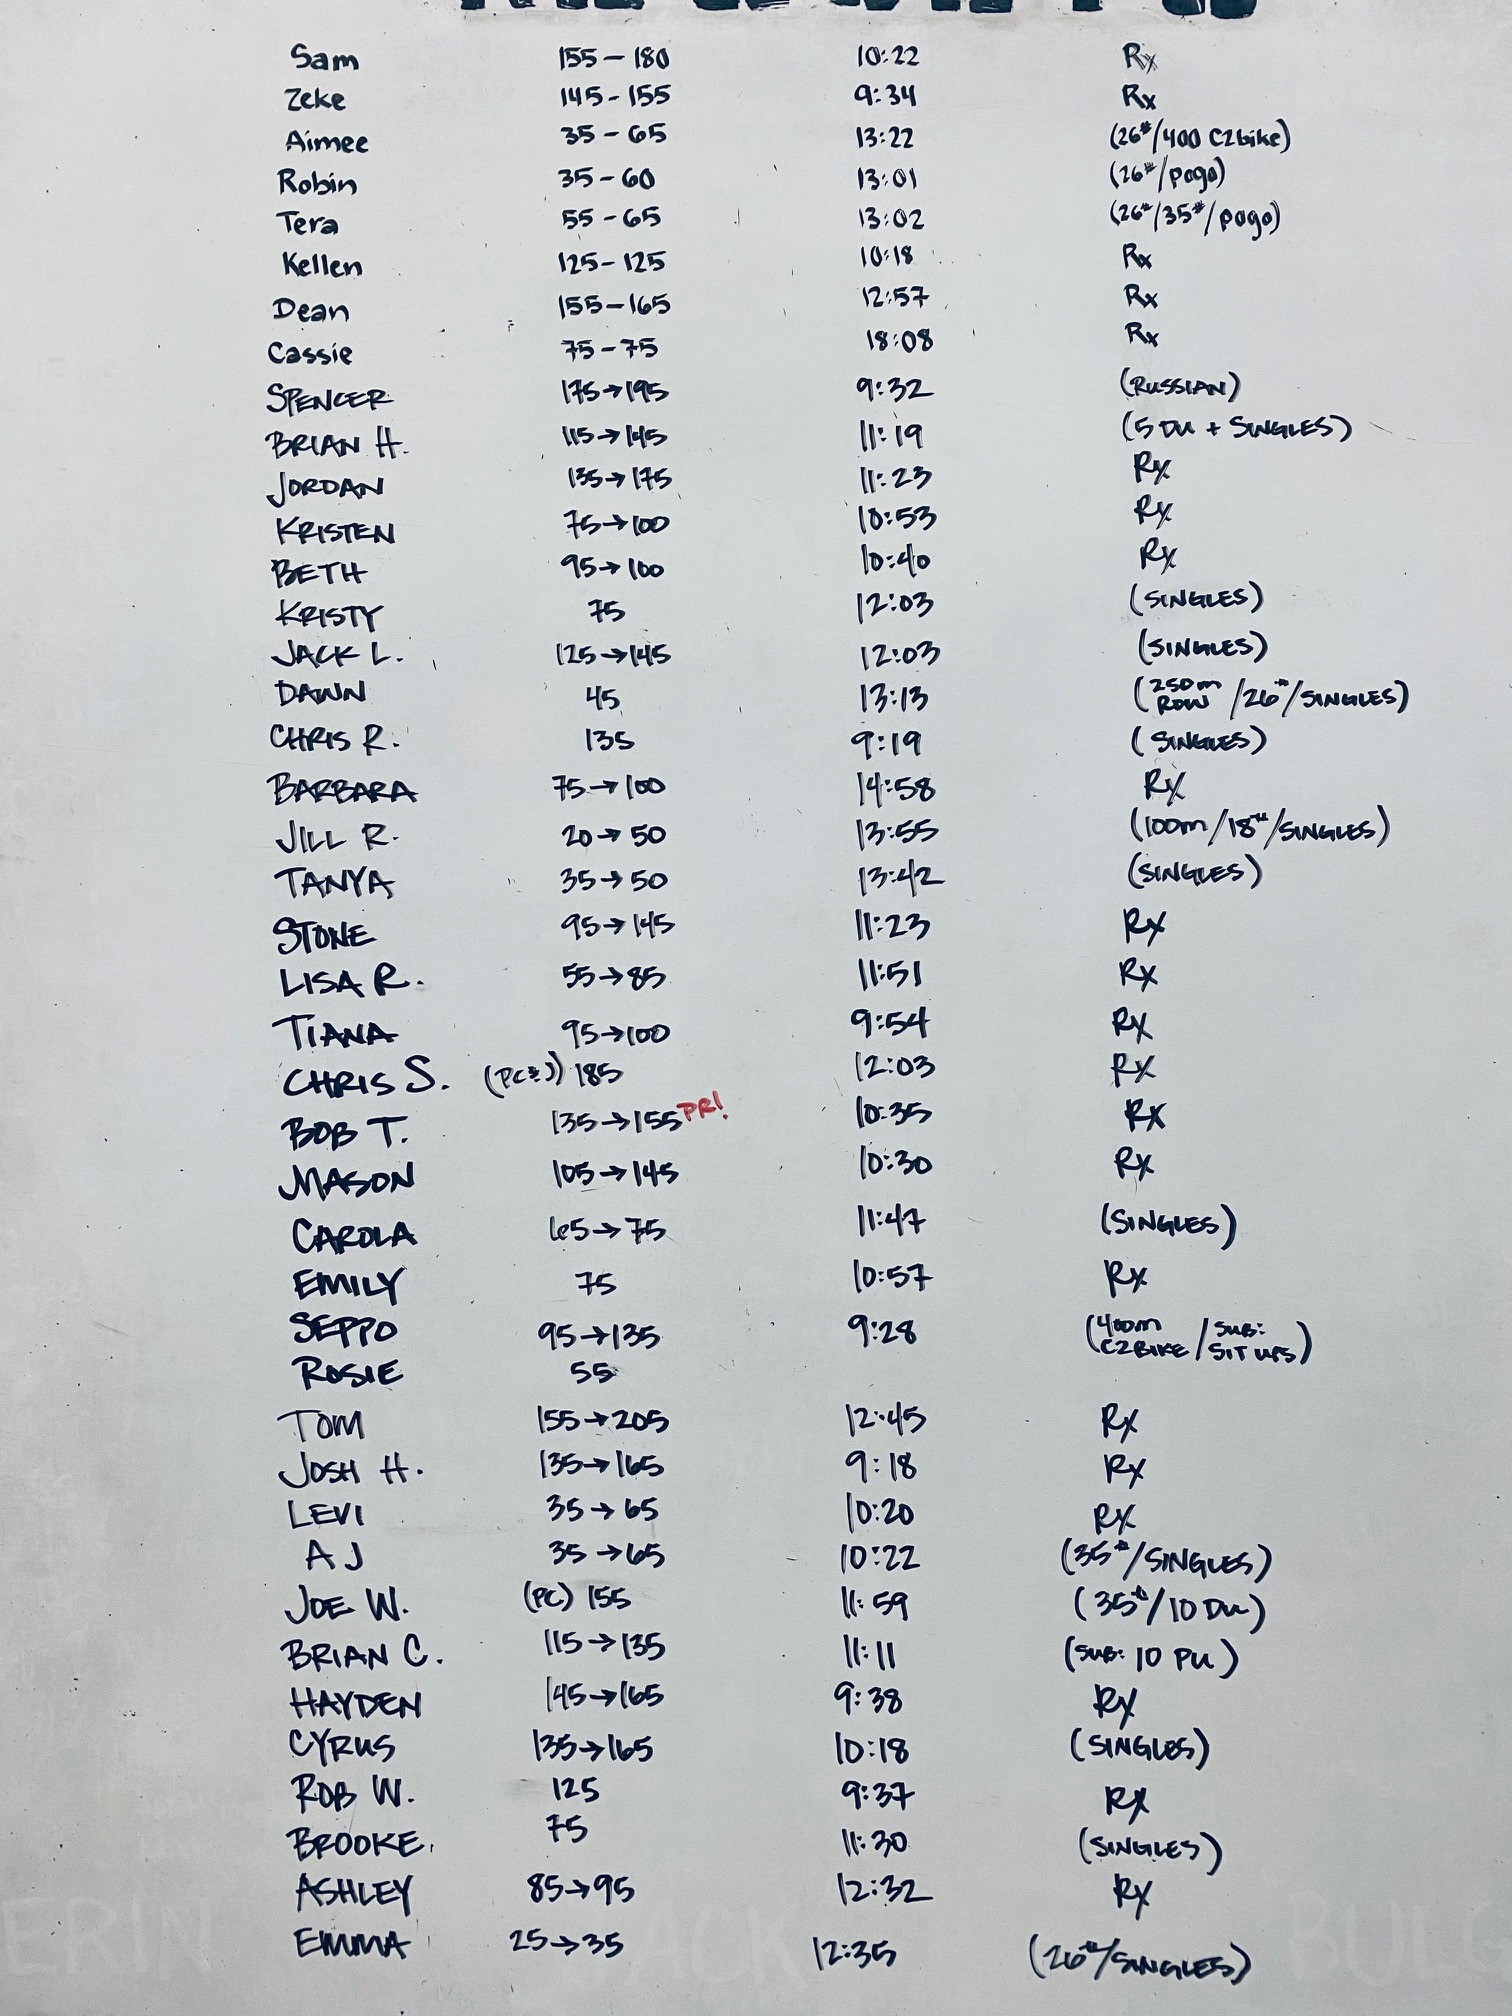 Sam 155-180 10:22 Rx
Zeke 145-155 9:34 Rx
Aimee 35-65 13:22 (26#/400 C2bike)
Robin 35-60 13:01 (26#/pogo)
Tera 55-65 13:02 (26#/35#/pogo)
Kellen 125-125 10:18 Rx
Dean 155-165 12:57 Rx
Cassie 75-75 18:08 Rx
SPENCER 175→195 9:32 (RUSSIAN)
BRIAN H. 115→145 11:19 (5 DU + SINGLES)
JORDAN 135→175 11:23 Rx
KRISTEN 75→100 10:53 Rx
BETH 95→100 10:40 Rx
KRISTY 75 12:03 (SINGLES)
JACK L. 125→145 12:03 (SINGLES)
DAWN 45 13:13 (250m ROW/26#/SINGLES)
CHRIS R. 135 9:19 (SINGLES)
BARBARA 75→100 14:58 Rx
JILL R. 20→50 13:55 (100m/18#/SINGLES)
TANYA 35→50 13:42 (SINGLES)
STONE 95→145 11:23 Rx
LISA R. 55→85 11:51 Rx
TIANA 95→100 9:54 Rx
CHRIS S. (PC&J) 185 12:03 Rx
BOB T. 135→155 PR! 10:35 Rx
MASON 105→145 10:30 Rx
CAROLA 65→75 11:47 (SINGLES)
EMILY 75 10:57 Rx
SEPPO 95→135 9:28 (400m C2BIKE/SUB: SIT UPS)
ROSIE 55
TOM 155→205 12:45 Rx
JOSH H. 135→165 9:18 Rx
LEVI 35→65 10:20 Rx
AJ 35→65 10:22 (35#/SINGLES)
JOE W. (PC) 155 11:59 (35#/10 DU)
BRIAN C. 115→135 11:11 (SUB: 10 PU)
HAYDEN 145→165 9:38 Rx
CYRUS 135→165 10:18 (SINGLES)
ROB W. 125 9:37 Rx
BROOKE 75 11:30 (SINGLES)
ASHLEY 85→95 12:32 Rx
EMMA 25→35 12:35 (26#/SINGLES)
ERIN